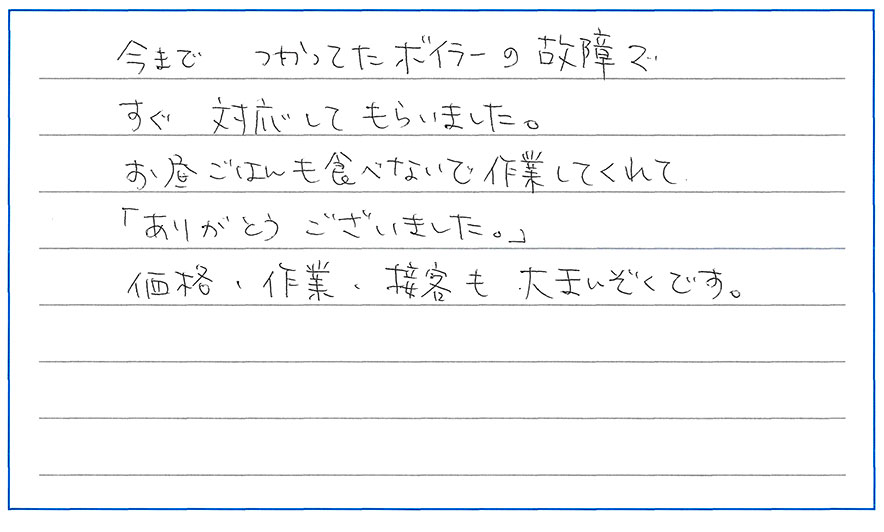 今まで つかってたボイラーの故障で
すぐ 対応してもらいました。
お昼ごはんも食べないで作業してくれて
「ありがとう ございました。」
価格、作業、接客も 大まんぞくです。